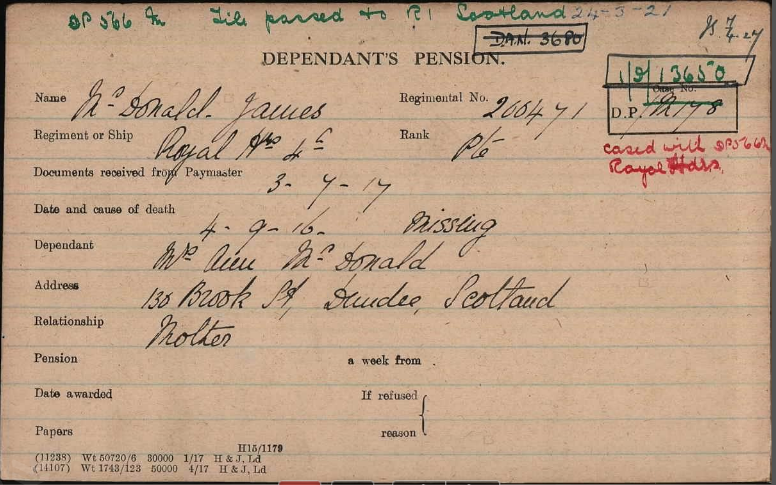 DP 566 M File passed to R1 Scotland 24-3-21
D.A.N. 3680
DEPENDANT'S PENSION.
1/D/13650
Case No.
D.P. M178
cased with DP566M
Royal Hdrs.
Name McDonald. James Regimental No. 200471
Regiment or Ship Royal Hrs 4th Rank Pte
Documents received from Paymaster 3-7-17
Date and cause of death 4-9-16. Missing
Dependant Mrs Ann McDonald
Address 130 Brook St, Dundee, Scotland
Relationship Mother
Pension a week from
Date awarded If refused
Papers reason
H15/1179
(11238) Wt 50720/6 30000 1/17 H & J, Ld
(14107) Wt 1743/123 50000 4/17 H & J, Ld